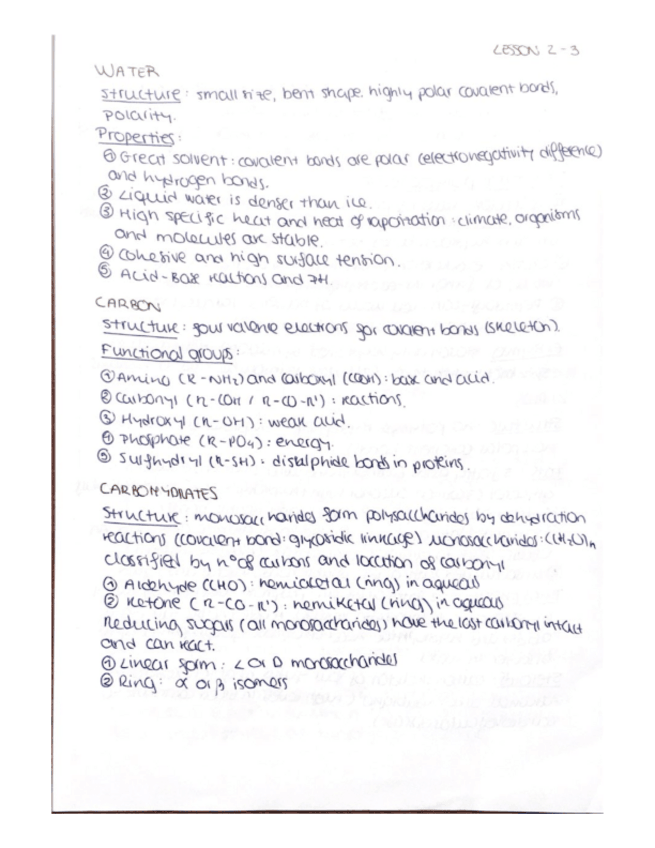 LESSON 2-3
WATER
structure: small size, bent shape, highly polar covalent bonds,
polarity.
Properties:
① Great solvent: covalent bonds are polar (electronegativity difference)
and hydrogen bonds.
② Liquid water is denser than ice.
③ High specific heat and heat of vaporitation: climate, organisms
and molecules are stable.
④ Cohesive and high surface tension.
⑤ Acid-Base reactions and PH.
CARBON
structure: four valence electrons for covalent bonds (skeleton).
Functional groups:
① Amino (R-NH2) and carboxyl (COOH): base and acid.
② Carbonyl (R-COH / R-CO-R'): reactions.
③ Hydroxyl (R-OH): weak acid.
④ Phosphate (R-PO4): energy.
⑤ Sulfhydryl (R-SH): disulphide bonds in proteins.
CARBOHYDRATES
Structure: monosaccharides form polysaccharides by dehydration
reactions (covalent bond: glycosidic linkage) Monosaccharides: (CH2O)n
classified by nº of carbons and location of carbonyl
① Aldehyde (CHO): hemiacetal (ring) in aqueous
② Ketone (R-CO-R'): hemiketal (ring) in aqueous
Reducing sugars (all monosaccharides) have the last carbonyl intact
and can react.
① Linear form: L or D monosaccharides
② Ring: α or β isomers